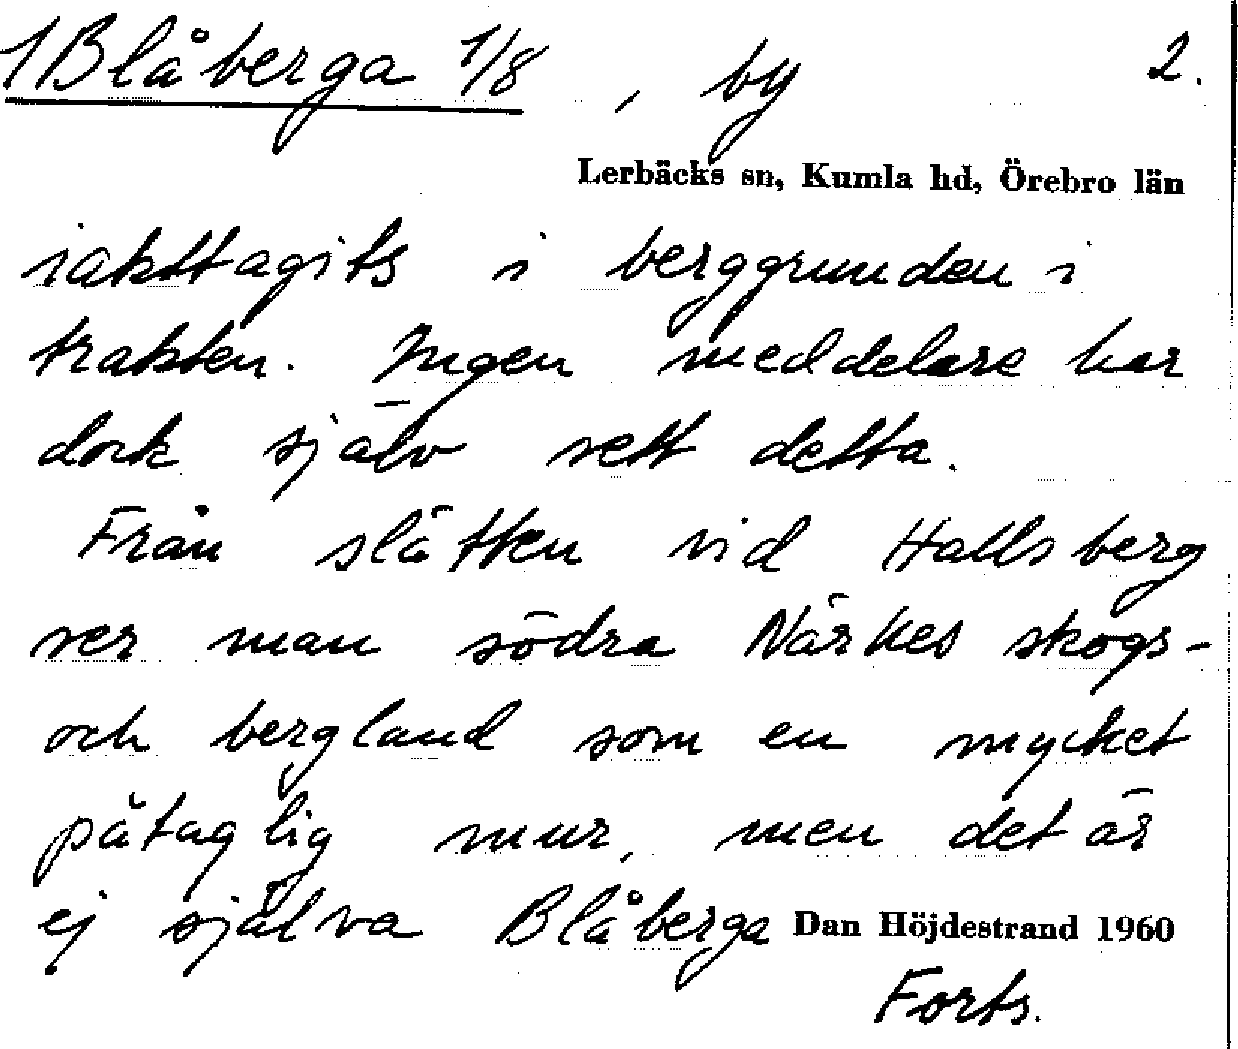 1 Blåberga 1/8, by 2.
Lerbäcks sn, Kumla hd, Örebro län
iakttagits i berggrunden i
trakten. Ingen meddelare har
dock själv sett detta.
Från slätten vid Hallsberg
ser man södra Närkes skogs-
och bergland som en mycket
påtaglig mur, men det är
ej själva Blåberga Dan Höjdestrand 1960
Forts.